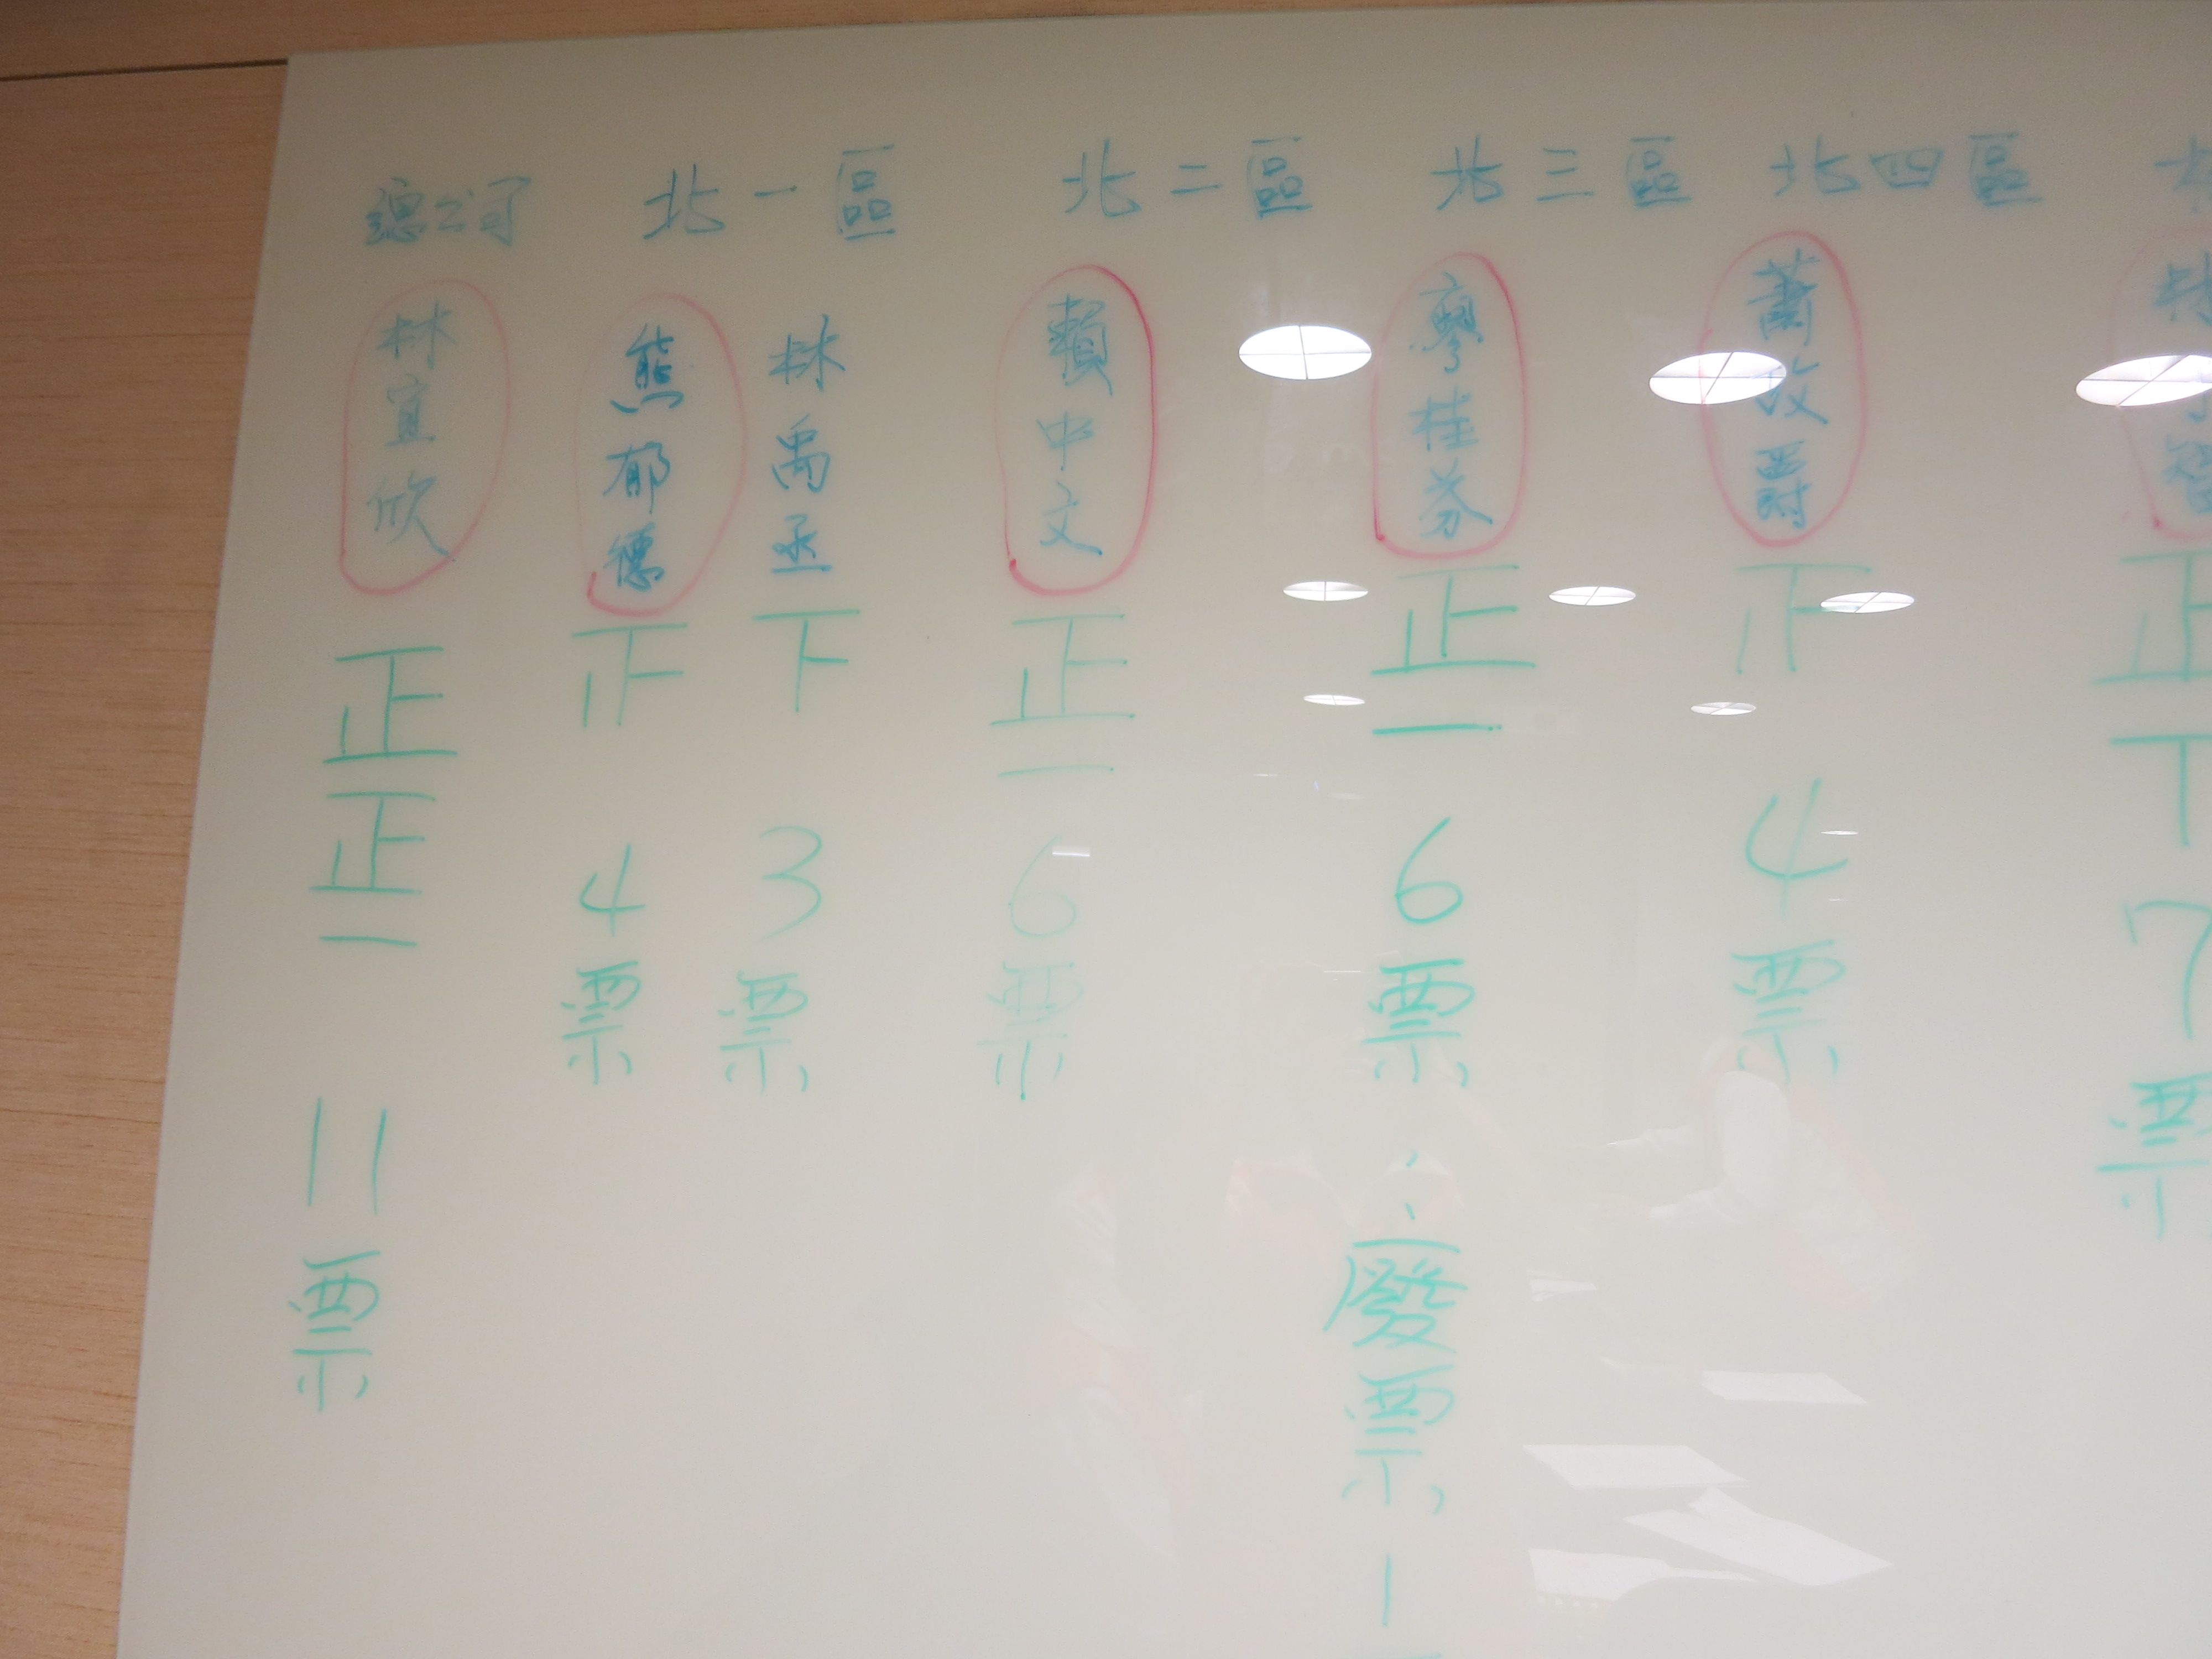 總公司 北一區 北二區 北三區 北四區
林宜欣
正正一
11票
熊郁德
正
4票
林禹丞
下
3票
賴中文
正一
6票
廖桂芬
正一
6票
廢票1
蕭 爵
4票
正
7票